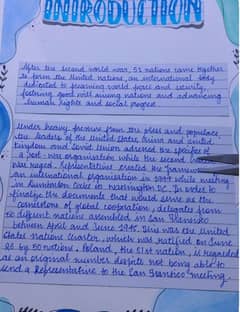 INTRODUCTION
After the second world war, 51 nations came together
to form the United nations, an international body
dedicated to promoting world peace and security,
fostering good will among nations and advancing
human rights and social progress.
Under heavy pressure from the press and populace,
the leaders of the United States, China and United
Kingdom and Soviet Union advised the specifics of
a post-war organisation while the second
war raged. Representatives created the framework
an international organisation in 1944 while meeting
in Dumbarton Oaks in Washington DC. In order to
finalize the documents that would serve as the
cornerstone of global cooperation, delegates from
50 different nations assembled in San Francisco
between April and June 1945. This was the United
states nations charter, which was ratified on June
26 by 50 nations. Poland, the 51st nation, is regarded
as an original number despite not being able to
send a Representative to the San Francisco meeting.